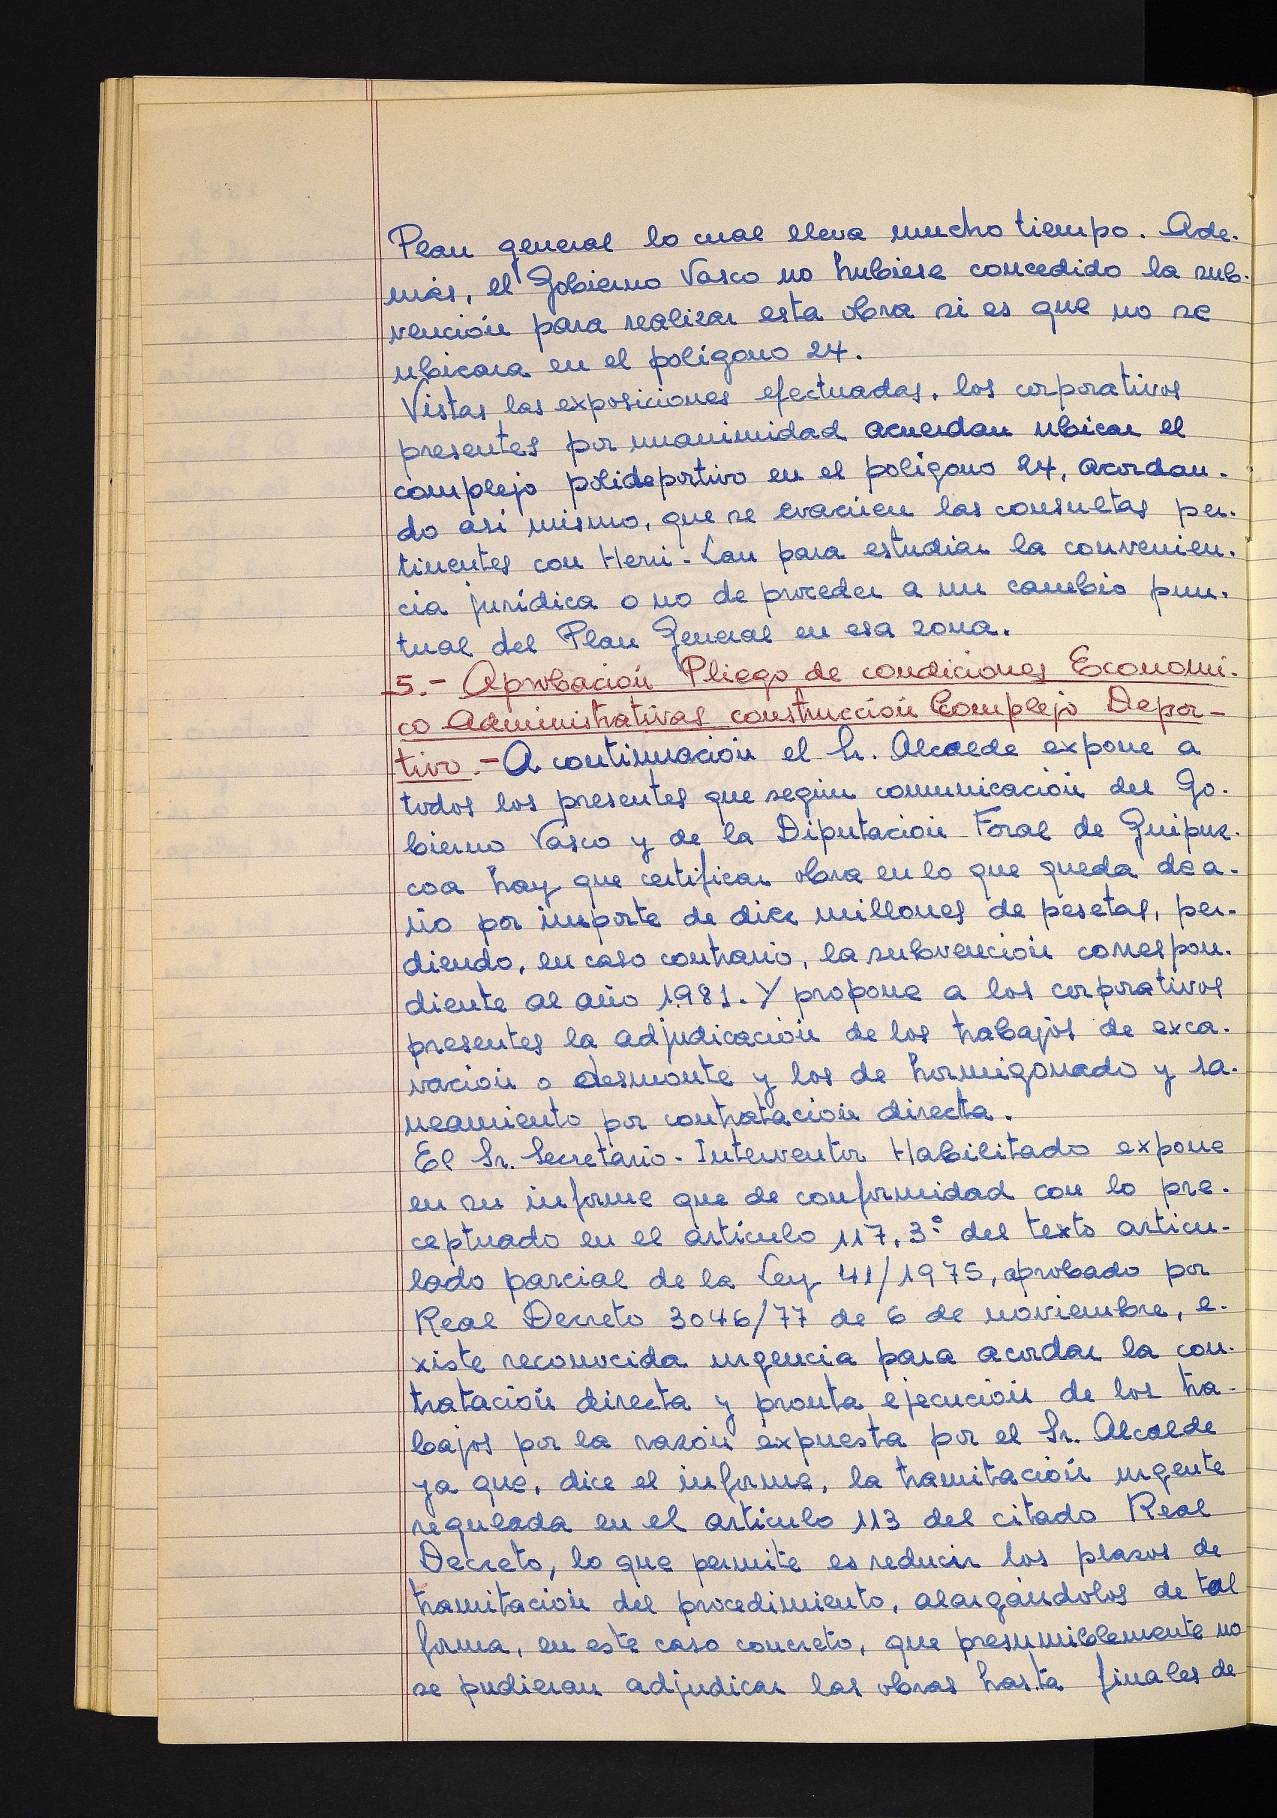 Plan general lo cual lleva mucho tiempo. Ade-
más, el Gobierno Vasco no hubiese concedido la sub-
vención para realizar esta obra si es que no se
ubicara en el polígono 24.
Vistas las exposiciones efectuadas, los corporativos
presentes por unanimidad acuerdan ubicar el
complejo polideportivo en el polígono 24, acordan-
do asi mismo, que se evacúen las consultas per-
tinentes con Herri-Lan para estudiar la convenien-
cia jurídica o no de proceder a un cambio pun-
tual del Plan General en esa zona.
5.- Aprobación Pliego de condiciones Economi-
co Administrativas construcción Complejo Depor-
tivo.- A continuación el Sr. Alcalde expone a
todos los presentes que según comunicación del Go-
bierno Vasco y de la Diputación Foral de Guipuz-
coa hay que certificar obra en lo que queda de a-
ño por importe de diez millones de pesetas, per-
diendo, en caso contrario, la subvención correspon-
diente al año 1.981. Y propone a los corporativos
presentes la adjudicación de los trabajos de exca-
vación o desmonte y los de hormigonado y sa-
neamiento por contratación directa.
El Sr. Secretario-Interventor Habilitado expone
en su informe que de conformidad con lo pre-
ceptuado en el artículo 117, 3.º del texto articu-
lado parcial de la Ley 41/1975, aprobado por
Real Decreto 3046/77 de 6 de noviembre, e-
xiste reconocida urgencia para acordar la con-
tratación directa y pronta ejecución de los tra-
bajos por la razón expuesta por el Sr. Alcalde
ya que, dice el informe, la tramitación urgente
regulada en el artículo 113 del citado Real
Decreto, lo que permite es reducir los plazos de
tramitación del procedimiento, alargándolos de tal
forma, en este caso concreto, que presumiblemente no
se pudieran adjudicar las obras hasta finales de